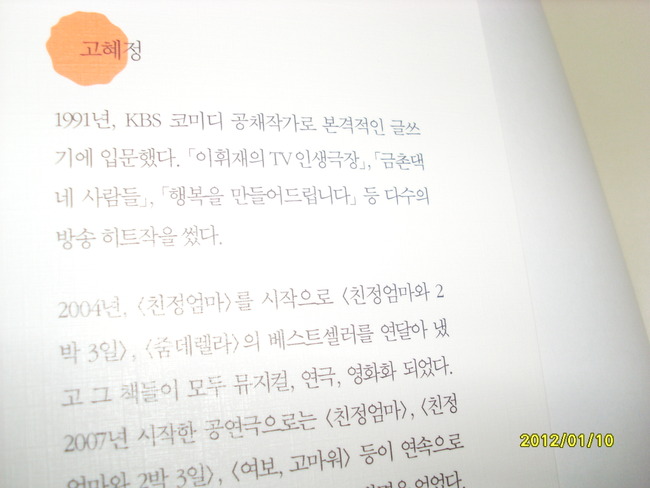 고혜정
1991년, KBS 코미디 공채작가로 본격적인 글쓰
기에 입문했다. 「이휘재의 TV 인생극장」, 「금촌댁
네 사람들」, 「행복을 만들어드립니다」 등 다수의
방송 히트작을 썼다.
2004년, 〈친정엄마〉를 시작으로 〈친정엄마와 2
박 3일〉, 〈줌데렐라〉의 베스트셀러를 연달아 냈
고 그 책들이 모두 뮤지컬, 연극, 영화화 되었다.
2007년 시작한 공연극으로는 〈친정엄마〉, 〈친정
엄마와 2박 3일〉, 〈여보, 고마워〉 등이 연속으로
얻었다.
2012/01/10